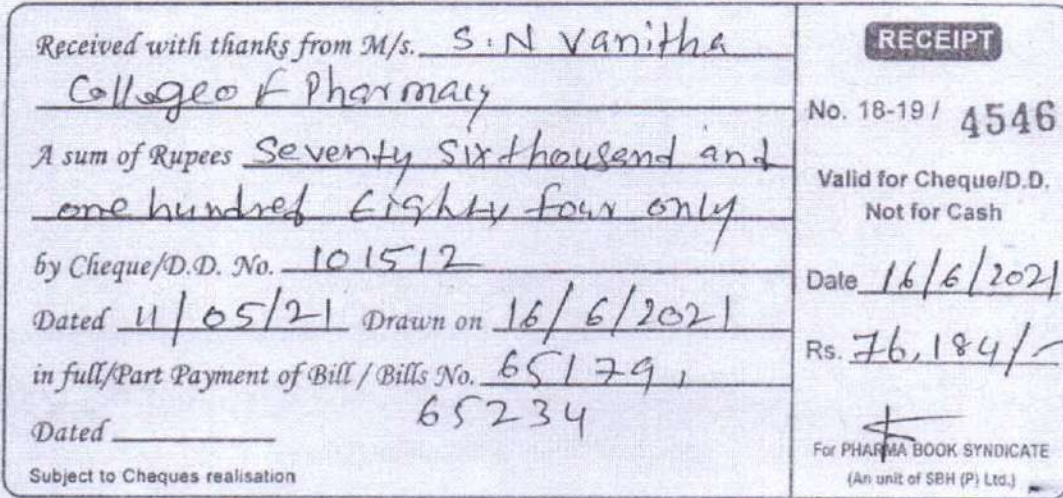 Received with thanks from M/s. S.N Vanitha
College of Pharmacy
A sum of Rupees Seventy Six thousand and
one hundred Eighty four only
by Cheque/D.D. No. 101512
Dated 11/05/21 Drawn on 16/6/2021
in full/Part Payment of Bill / Bills No. 65179,
65234
Dated
Subject to Cheques realisation
RECEIPT
No. 18-19 / 4546
Valid for Cheque/D.D.
Not for Cash
Date 16/6/2021
Rs. 76,184/-
For PHARMA BOOK SYNDICATE
(An unit of SBH (P) Ltd.)